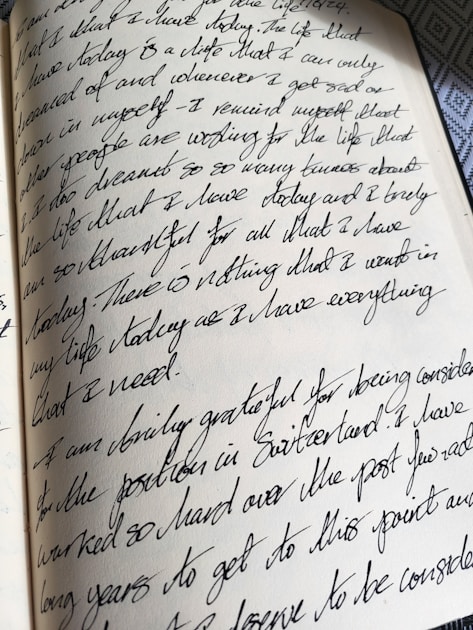 for the life
that I what I have today. The life that
I have today is a life that I can only
dreamed of and whenever I get sad or
down in myself - I remind myself that
other people are wishing for the life that
I do dreamt so so many times about
the life that I have today and I truly
am so thankful for all that I have
today. There is nothing that I want in
my life today as I have everything
that I need.
I am truly grateful for being conside
for the position in Switzerland. I have
worked so hard over the past few
long years to get to this point and
I deserve to be conside